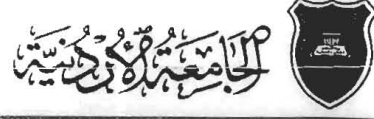 الجَامِعَةُ الْأُرْدُنِيَّة